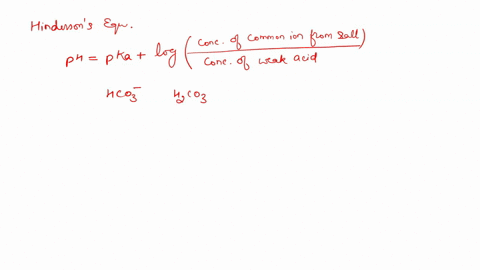 Hinderson's Eqn.
pH = pKa + log (Conc. of Common ion from sall / Conc. of weak acid)
HCO3⁻ H2CO3